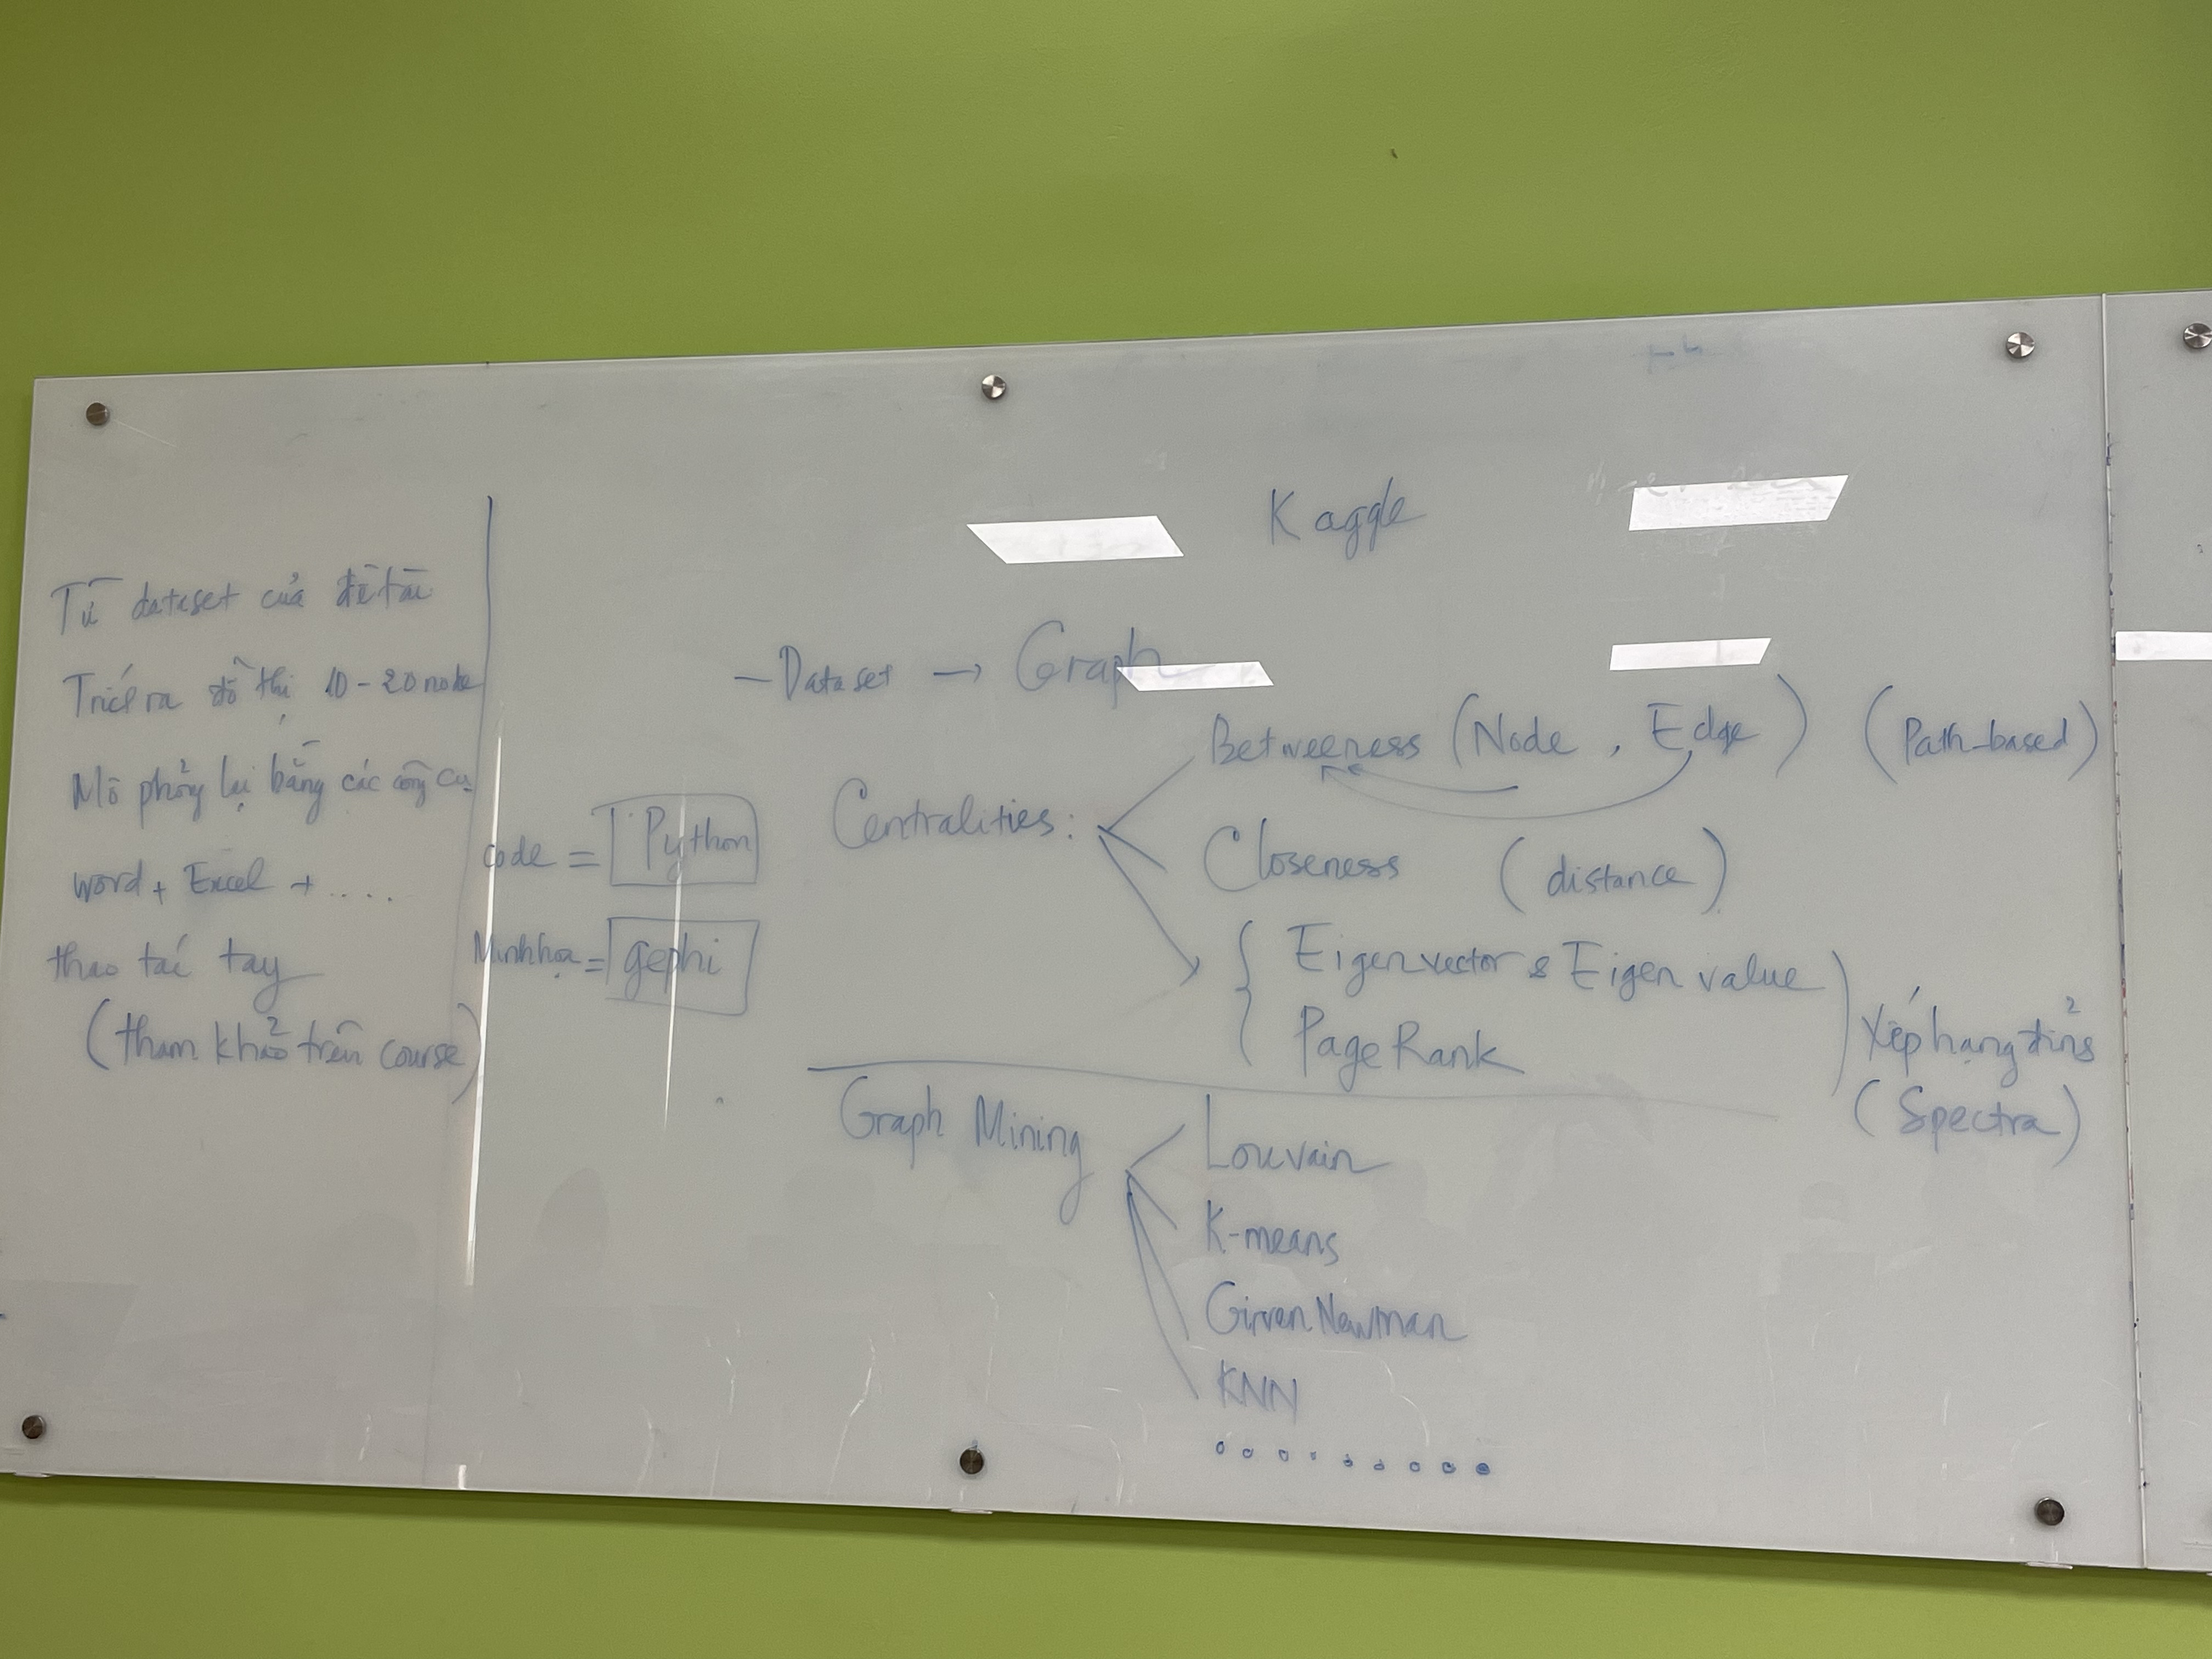 Kaggle
Từ dataset của đề tài
Trích ra đồ thị 10-20 node
Mô phỏng lại bằng các công cụ
word + Excel + .....
thao tác tay
(tham khảo trên course)
code = Python
Minh họa = gephi
- Dataset → Graph
Centralities:
Betweeness (Node, Edge) (Path-based)
Closeness (distance)
Eigenvector & Eigen value
PageRank
Xếp hạng đỉnh
(Spectra)
Graph Mining
Louvain
K-means
Girven Newman
KNN
.........